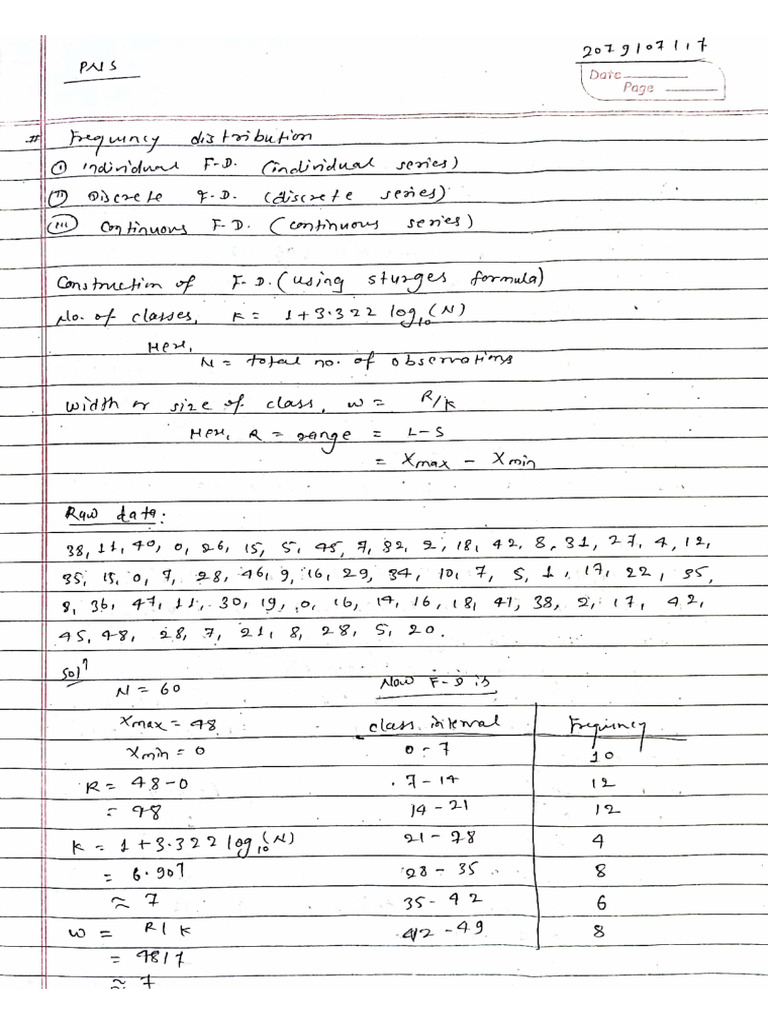 PNS
2079/07/17
Date
Page
# Frequincy distribution
(i) individual F.D. (individual series)
(ii) Discrete F.D. (discrete series)
(iii) Continuous F.D. (continuous series)
Construction of F.D. (using sturges formula)
No. of classes, K = 1+3.322 log₁₀(N)
Here,
N = total no. of observations
width or size of class, w = R/K
Here, R = range = L-S
= Xmax - Xmin
Raw data:
38, 11, 40, 0, 26, 15, 5, 45, 7, 32, 2, 18, 42, 8, 31, 27, 4, 12,
35, 15, 0, 7, 28, 46, 9, 16, 29, 34, 10, 7, 5, 1, 17, 22, 35,
8, 36, 47, 11, 30, 19, 0, 16, 14, 16, 18, 41, 38, 2, 17, 42,
45, 48, 28, 7, 21, 8, 28, 5, 20.
Solⁿ
N = 60
Xmax = 48
Xmin = 0
R = 48-0
= 48
K = 1+3.322 log₁₀(N)
= 6.907
≈ 7
w = R/K
= 48/7
≈ 7
Now F-D is
class interval Frequincy
0-7 10
7-14 12
14-21 12
21-28 4
28-35 8
35-42 6
42-49 8